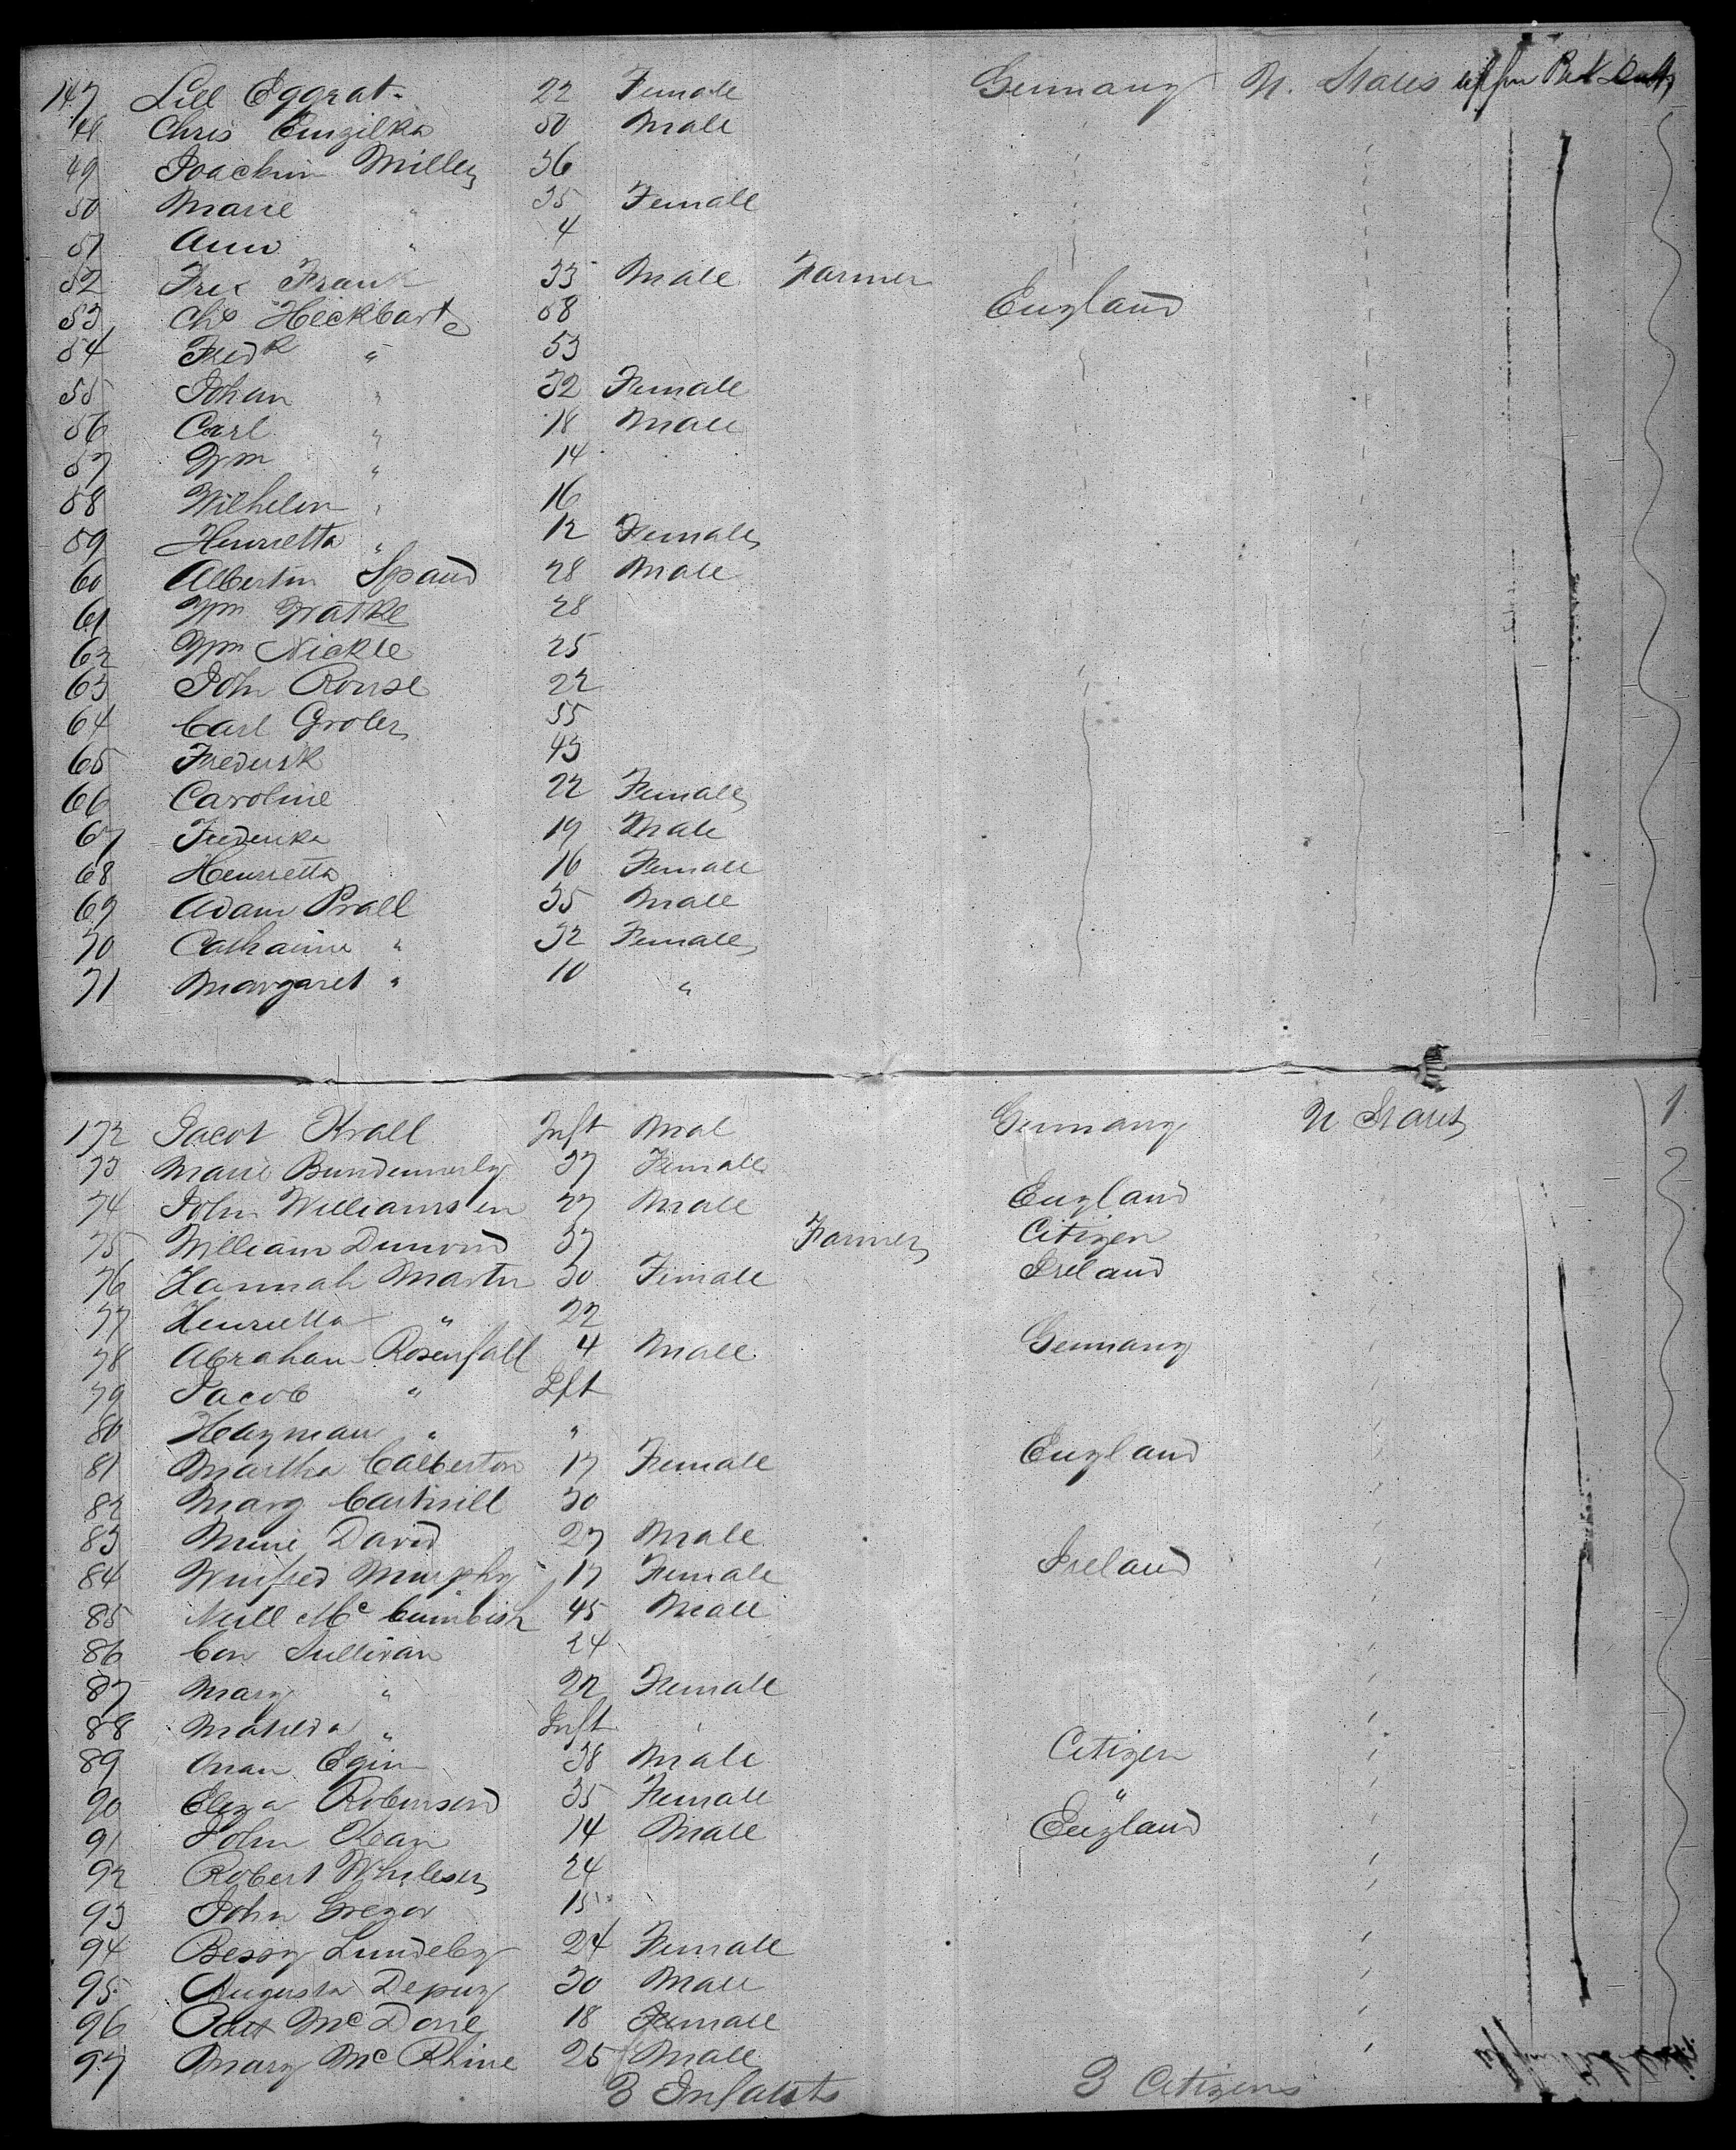 147 Lill Eggrat. 22 Female Germany U. States
48 Chris 50 Male
49 Joachim Miller 36
50 Marie " 35 Female
51 Ann " 4
52 Fred Frank 33 Male Farmer
53 Chs Heckbart 58 England
54 Fredk " 53
55 Johan " 32 Female
56 Carl " 18 Male
57 Wm " 14
58 Wilhelm " 16
59 Henrietta " 12 Female
60 Albertin Spaud 28 Male
61 Wm Watke 28
62 Wm Nickle 25
63 John Rouse 22
64 Carl Groler 55
65 Frederik 43
66 Caroline 22 Female
67 Frederika 19 Male
68 Henrietta 16 Female
69 Adam Prall 35 Male
70 Catharine " 32 Female
71 Margaret " 10 "
172 Jacob Krall Inft Mal Germany U States
73 Marie 37 Female
74 John Williamsen 27 Male England
75 William 37 Farmer Citizen
76 Hannah Martin 30 Female Ireland
77 Henrietta " 22
78 Abraham Rosenfall 4 Male Germany
79 Jacob " Ift
80 Hayman " "
81 Martha Calberton 17 Female England
82 Mary 30
83 Mine David 27 Male
84 Winifred Murphy 17 Female Ireland
85 Neill Mc 45 Male
86 Con Sullivan 24
87 Mary " 22 Female
88 Matilda " Inft
89 Egin 38 Male Citizen
90 Eliza Robinson 35 Female "
91 John Kean 14 Male England
92 Robert 24
93 John Gregor 15
94 Bessy Lundeby 24 Female
95 Augusta Depuy 30 Male
96 Patt McDone 18 Female
97 Mary McRhine 25 Male
3 Infants 3 Citizens